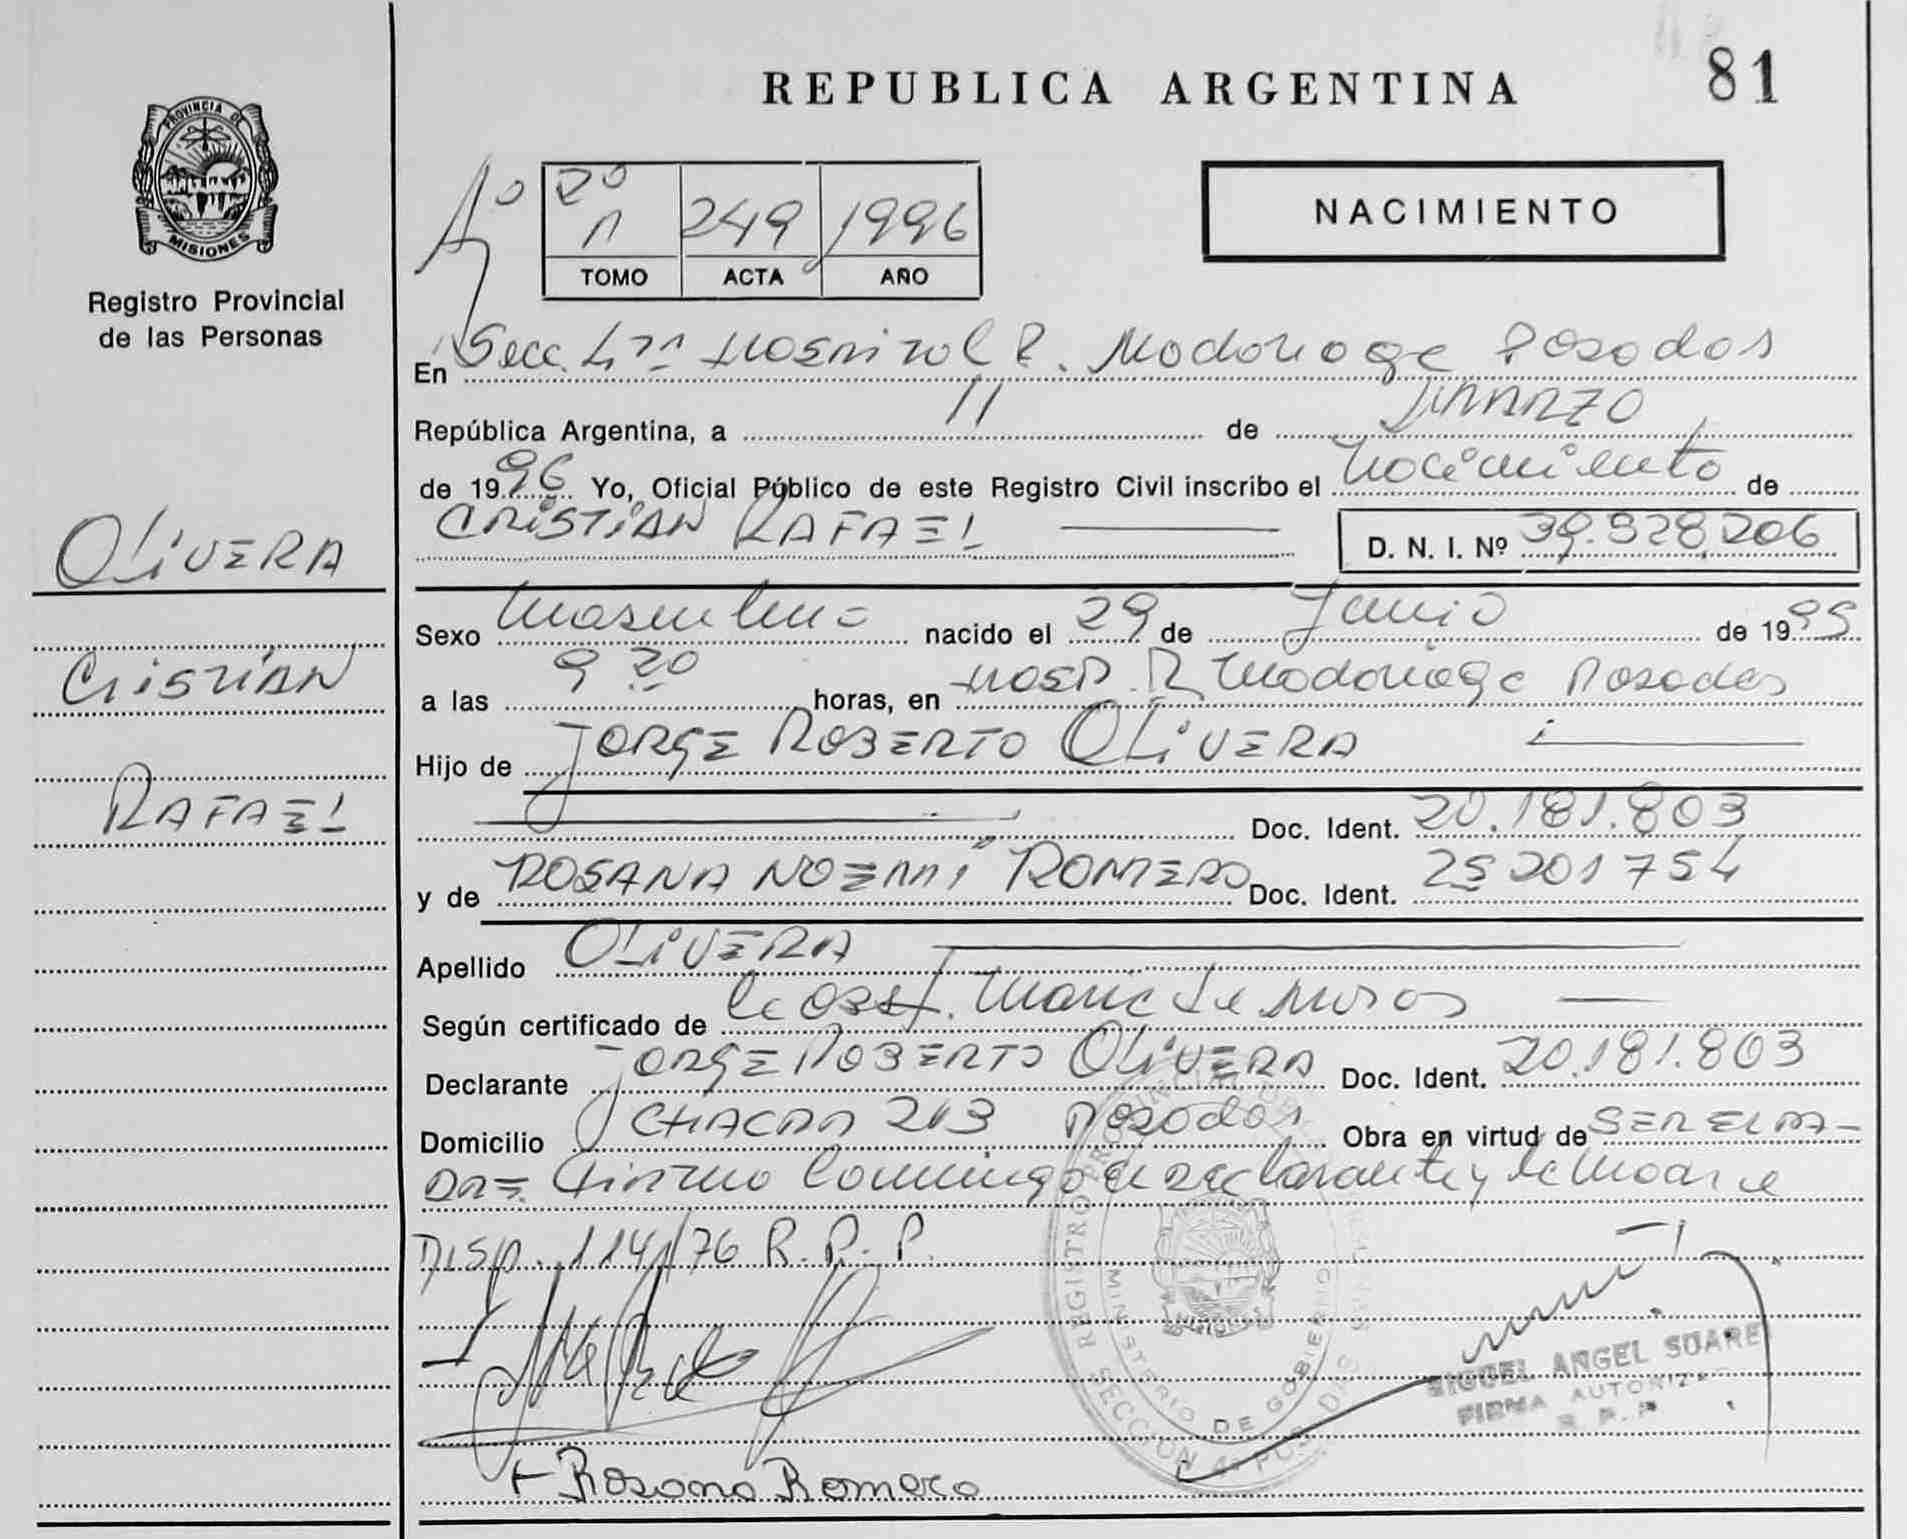 81
REPUBLICA ARGENTINA
PROVINCIA DE
MISIONES
Registro Provincial
de las Personas
2º
1 249 1996
TOMO ACTA AÑO
NACIMIENTO
En Secc. 4ta Hospital R. Madariaga Posadas
República Argentina, a 11 de MARZO
de 1996 Yo, Oficial Público de este Registro Civil inscribo el nacimiento de
CRISTIAN RAFAEL
D. N. I. Nº 39.928.206
OLIVERA
CRISTIAN
RAFAEL
Sexo masculino nacido el 29 de Junio de 1995
a las 9 20 horas, en HOSP. R. Madariaga Posadas
Hijo de JORGE ROBERTO OLIVERA
Doc. Ident. 20.181.803
y de ROSANA NOEMÍ ROMERO Doc. Ident. 25201754
Apellido OLIVERA
Según certificado de la obst. María de
Declarante JORGE ROBERTO OLIVERA Doc. Ident. 20.181.803
Domicilio CHACRA 213 Posadas Obra en virtud de SER EL PA-
DRE. Firman conmigo el declarante y la madre
DISP. 114/76 R.P.P.
REGISTRO PROVINCIAL
MINISTERIO DE GOBIERNO
SECCION 4ª
MIGUEL ANGEL SUARE
FIRMA AUTORIZ
R. P. P
+ Rosana Romero